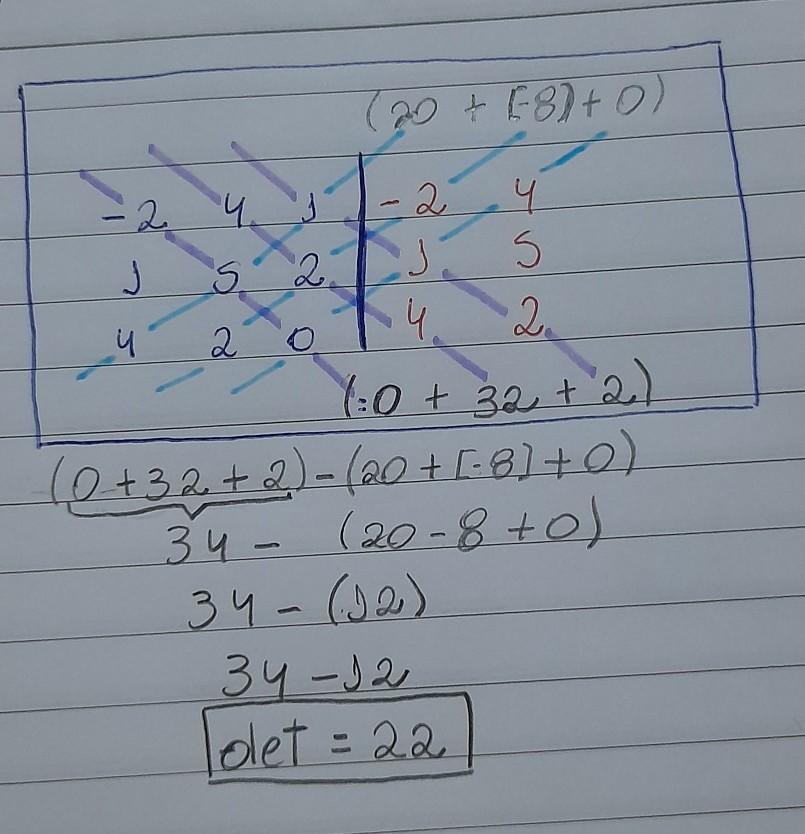 (20 + [-8] + 0)
-2 4 1 | -2 4
1 5 2 | 1 5
4 2 0 | 4 2
(-0 + 32 + 2)
(0 + 32 + 2) - (20 + [-8] + 0)
34 - (20 - 8 + 0)
34 - (12)
34 - 12
det = 22